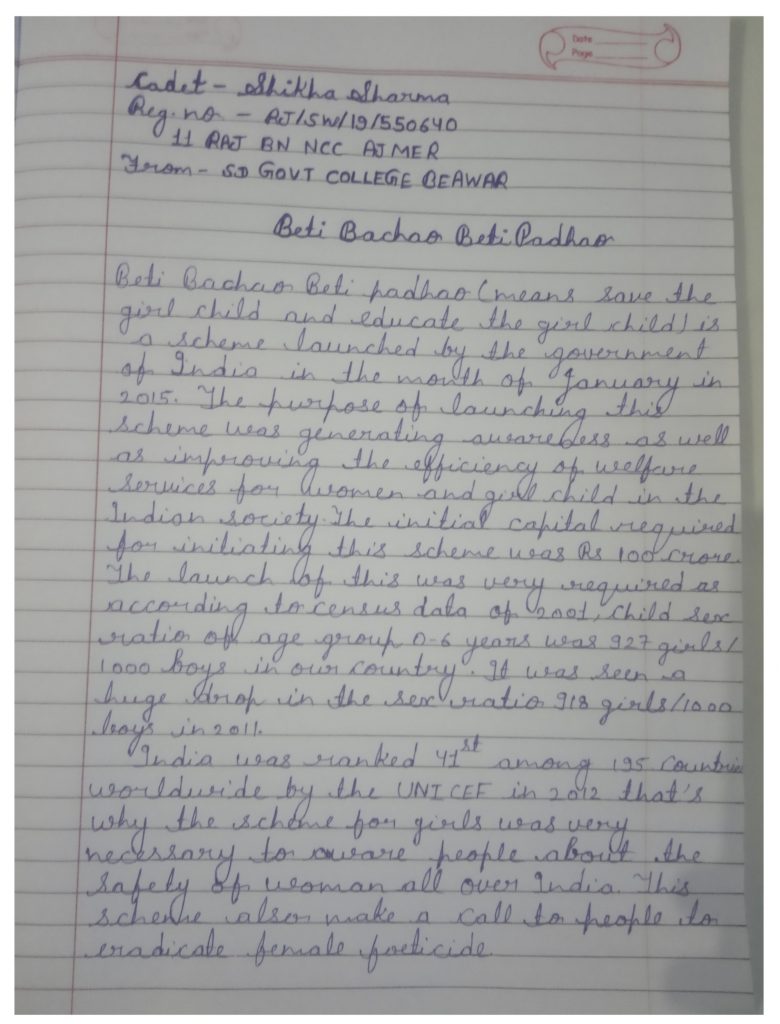 Date
Page
Cadet - Shikha Sharma
Reg. no - RJ/SW/19/550640
11 RAJ BN NCC AJMER
From - SD GOVT COLLEGE BEAWAR
Beti Bachao Beti Padhao
Beti Bachao Beti padhao (means save the
girl child and educate the girl child) is
a scheme launched by the government
of India in the month of January in
2015. The purpose of launching this
scheme was generating awareness as well
as improving the efficiency of welfare
services for women and girl child in the
Indian society. The initial capital required
for initiating this scheme was Rs 100 crore.
The launch of this was very required as
according to census data of 2001, child sex
ratio of age group 0-6 years was 927 girls/
1000 boys in our country. It was seen a
huge drop in the sex ratio 918 girls/1000
boys in 2011.
India was ranked 41st among 195 Countries
worldwide by the UNICEF in 2012 that's
why the scheme for girls was very
necessary to aware people about the
safely of woman all over India. This
scheme also make a call to people to
eradicate female foeticide.